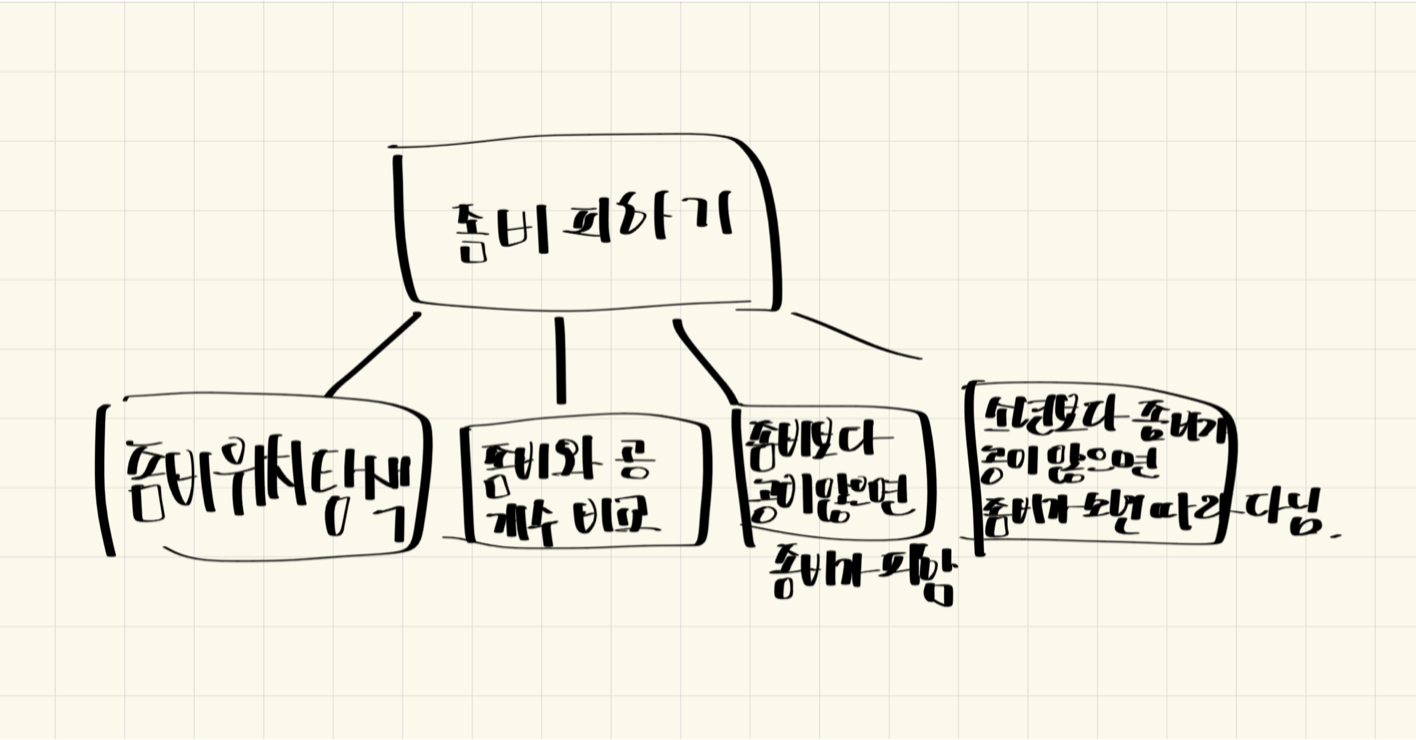 좀비 피하기
좀비위치탐색
좀비와 공
개수 비교
좀비보다
공이많으면
좀비가 피함
소년보다 좀비가
공이 많으면
좀비가 소년 따라 다님.